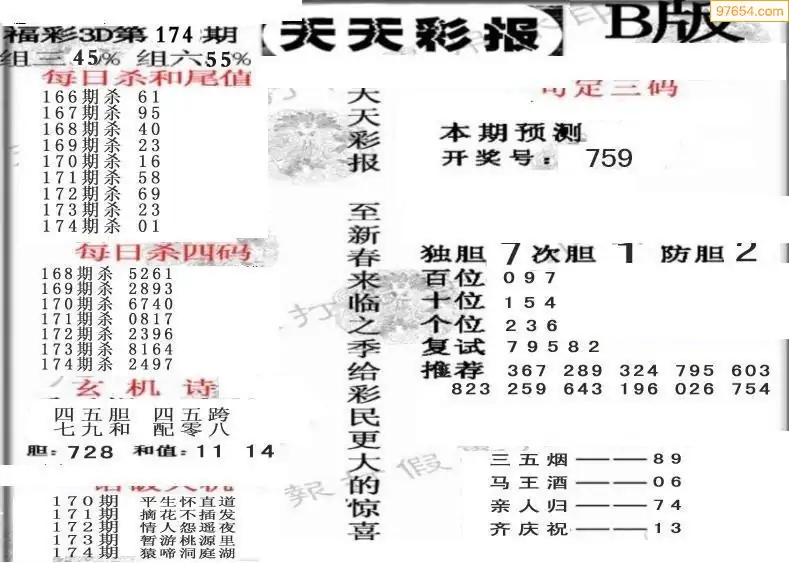 97654.com
福彩3D第174期
【天天彩报】
B版
组三45% 组六55%
每日杀和尾值
166期杀 61
167期杀 95
168期杀 40
169期杀 23
170期杀 16
171期杀 58
172期杀 69
173期杀 23
174期杀 01
每日杀四码
168期杀 5261
169期杀 2893
170期杀 6740
171期杀 0817
172期杀 2396
173期杀 8164
174期杀 2497
玄机诗
四五胆 四五跨
七九和 配零八
胆:728 和值:11 14
170期 平生怀直道
171期 摘花不插发
172期 情人怨遥夜
173期 暂游桃源里
174期 猿啼洞庭湖
天天彩报 至新春来临之季给彩民更大的惊喜
定三码
本期预测
开奖号: 759
独胆 7 次胆 1 防胆 2
百位 097
十位 154
个位 236
复试 79582
推荐 367 289 324 795 603
823 259 643 196 026 754
三五烟——89
马王酒——06
亲人归——74
齐庆祝——13